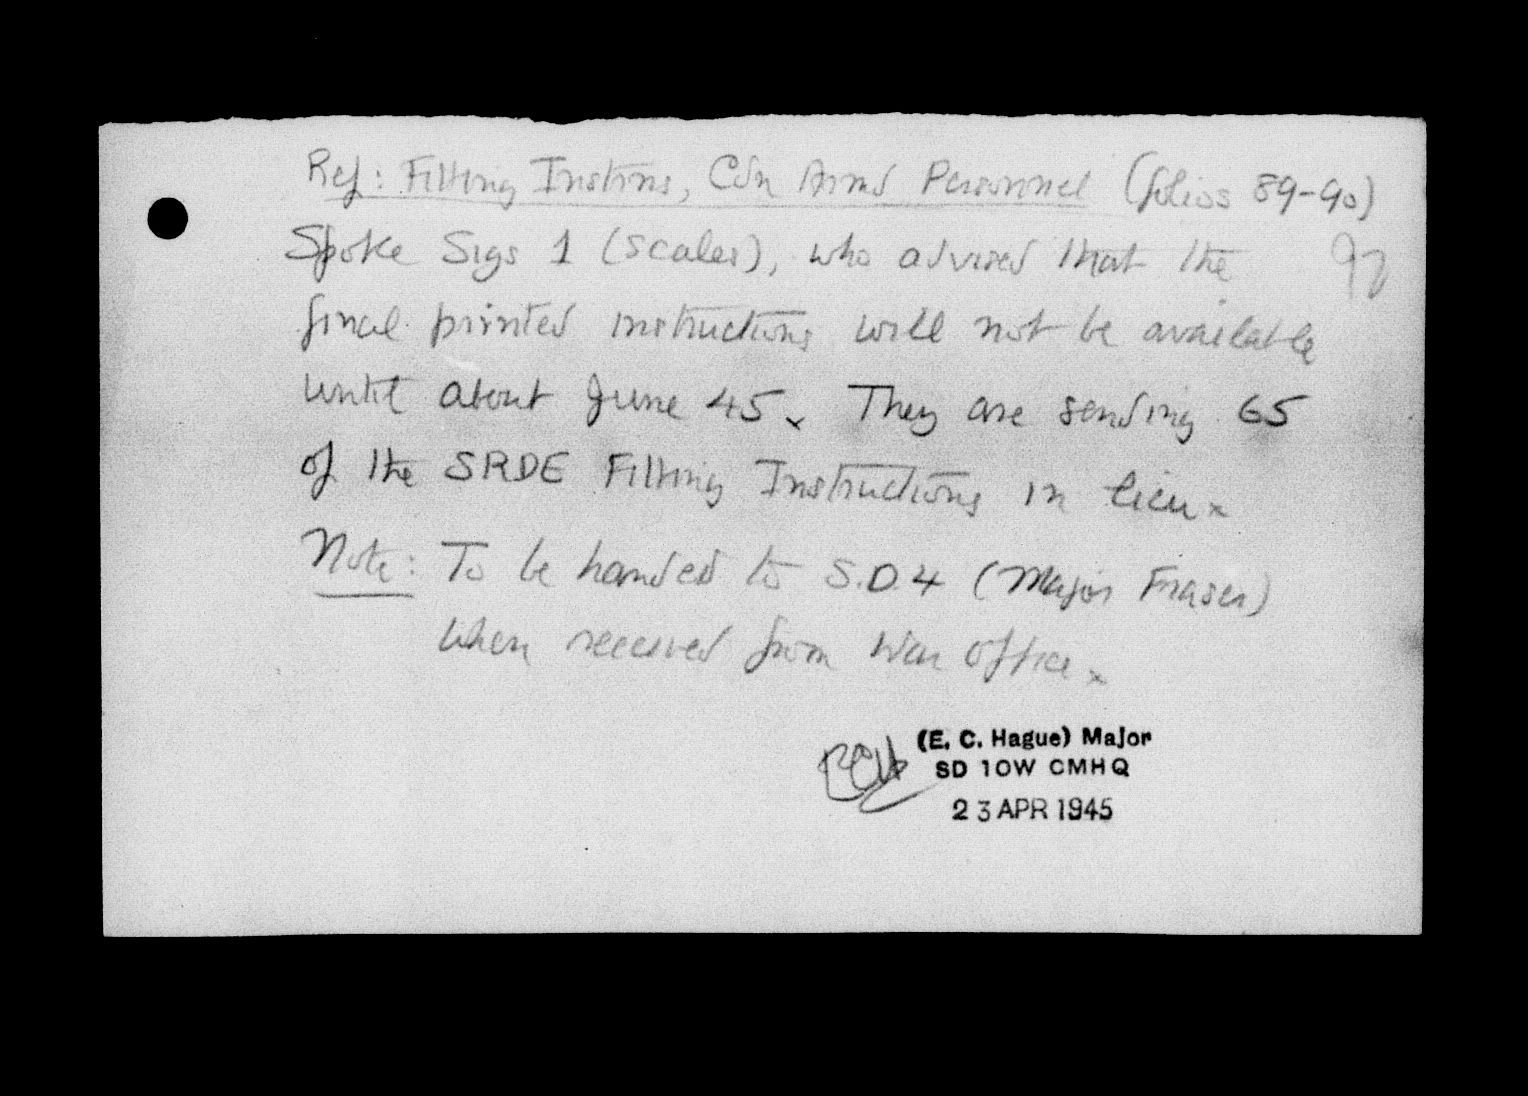 Ref: Fitting Instrns, Cdn Armd Personnel (folios 89-90)
Spoke Sigs 1 (Scales), who advised that the
final printed instructions will not be available
until about June 45x They are sending 65
of the SRDE Fitting Instructions in lieu x
Note: To be handed to S.D.4 (Major Fraser)
when received from War Office x
(E. C. Hague) Major
SD 10W CMHQ
23 APR 1945